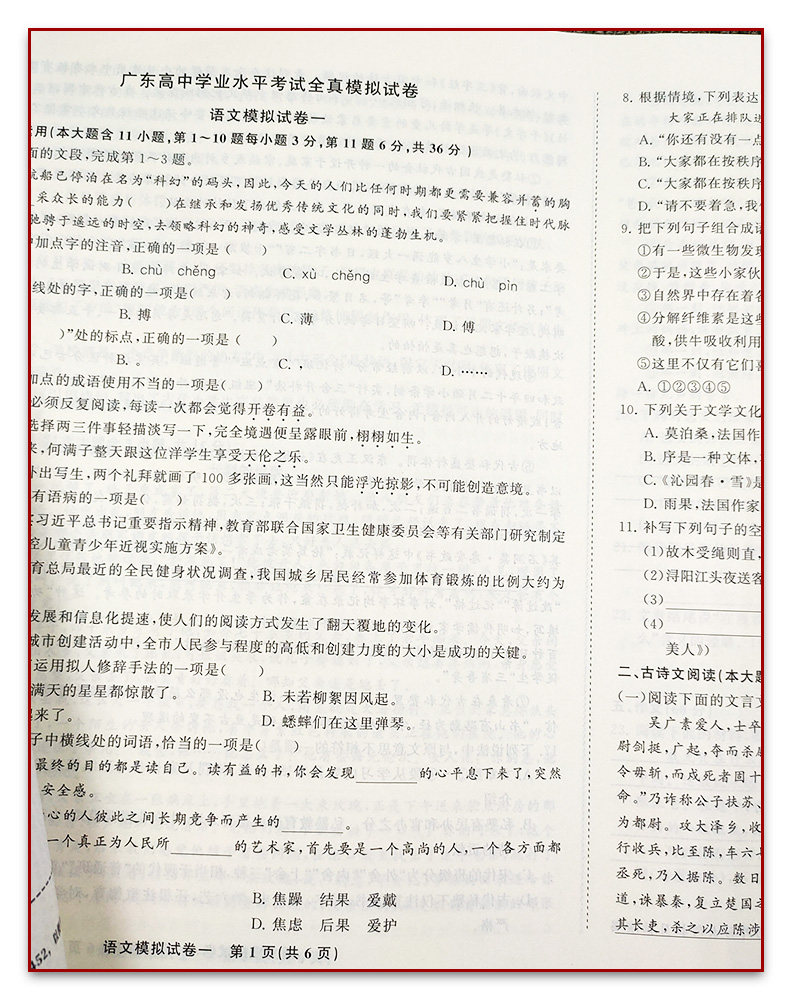 广东高中学业水平考试全真模拟试卷
语文模拟试卷一
用(本大题含11小题,第1~10题每小题3分,第11题6分,共36分)
面的文段,完成第1~3题。
航船已停泊在名为“科幻”的码头,因此,今天的人们比任何时期都更需要兼容并蓄的胸
采众长的能力(  )在继承和发扬优秀传统文化的同时,我们要紧紧把握住时代脉
驰骋于遥远的时空,去领略科幻的神奇,感受文学丛林的蓬勃生机。
中加点字的注音,正确的一项是(  )
B. chù chěng C. xù chěng D. chù pìn
线处的字,正确的一项是(  )
B. 搏 C. 薄 D. 傅
)”处的标点,正确的一项是(  )
B. 。 C. , D. ……
加点的成语使用不当的一项是(  )
必须反复阅读,每读一次都会觉得开卷有益。
选择两三件事轻描淡写一下,完全境遇便呈露眼前,栩栩如生。
来,何满子整天跟这位洋学生享受天伦之乐。
外出写生,两个礼拜就画了100多张画,这当然只能浮光掠影,不可能创造意境。
有语病的一项是(  )
实习近平总书记重要指示精神,教育部联合国家卫生健康委员会等有关部门研究制定
控儿童青少年近视实施方案》。
育总局最近的全民健身状况调查,我国城乡居民经常参加体育锻炼的比例大约为
发展和信息化提速,使人们的阅读方式发生了翻天覆地的变化。
城市创建活动中,全市人民参与程度的高低和创建力度的大小是成功的关键。
运用拟人修辞手法的一项是(  )
满天的星星都惊散了。 B. 未若柳絮因风起。
起来了。 D. 蟋蟀们在这里弹琴。
子中横线处的词语,恰当的一项是(  )
最终的目的都是读自己。读有益的书,你会发现______的心平息下来了,突然
安全感。
心的人彼此之间长期竞争而产生的______。
一个真正为人民所______的艺术家,首先要是一个高尚的人,一个各方面都
B. 焦躁 结果 爱戴
D. 焦虑 后果 爱护
语文模拟试卷一 第1页(共6页)
8. 根据情境,下列表达
大家正在排队进
A. “你还有没有一点
B. “大家都在按秩序
C. “大家都在按秩序
D. “请不要着急,我
9. 把下列句子组合成语
①有一些微生物发现
②于是,这些小家伙
③自然界中存在着各
④分解纤维素是这些
酸,供牛吸收利用
⑤这里不仅有它们喜
A. ①②③④⑤
10. 下列关于文学文化
A. 莫泊桑,法国作
B. 序是一种文体,
C.《沁园春·雪》是
D. 雨果,法国作家
11. 补写下列句子的空
(1)故木受绳则直,
(2)浔阳江头夜送客
(3)
(4)
美人》)
二、古诗文阅读(本大题
(一)阅读下面的文言文
吴广素爱人,士卒
尉剑挺,广起,夺而杀尉
令毋斩,而戍死者固十
命。”乃诈称公子扶苏、
为都尉。攻大泽乡,收
行收兵,比至陈,车六
丞死,乃入据陈。数日
道,诛暴秦,复立楚国之
其长吏,杀之以应陈涉